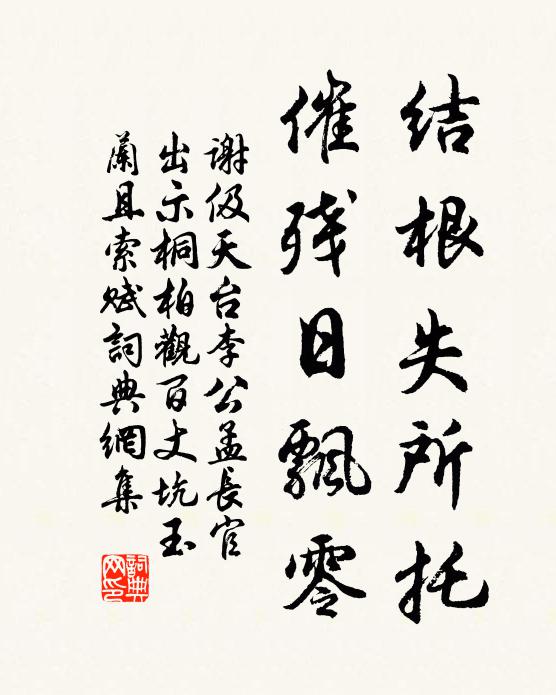 结根失所托
催残日飘零
謝伋天台李公孟長官
出示桐柏觀百丈坑玉
蘭且索赋詞典網集
詞典网印